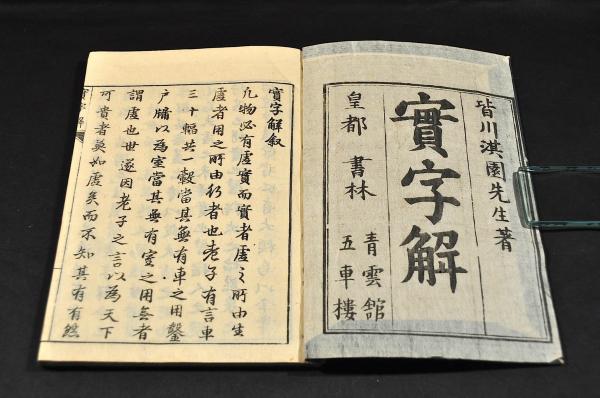 皆川淇園先生著
實字解
青雲館
皇都 書林 五車樓
實字解叙
凡物必有虛實而實者虛之所由生
虛者用之所由行者也老子有言車
三十輻共一轂當其無有車之用鑿
户牖以為室當其無有室之用無者
謂虛也世遂因老子之言以為天下
可貴者莫如虛矣而不知其有有然